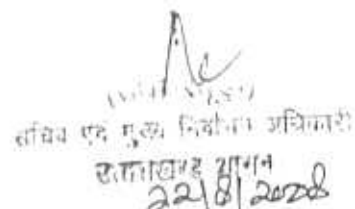 सचिव एवं मुख्य निर्वाचन अधिकारी
उत्तराखण्ड शासन
22/8/2028